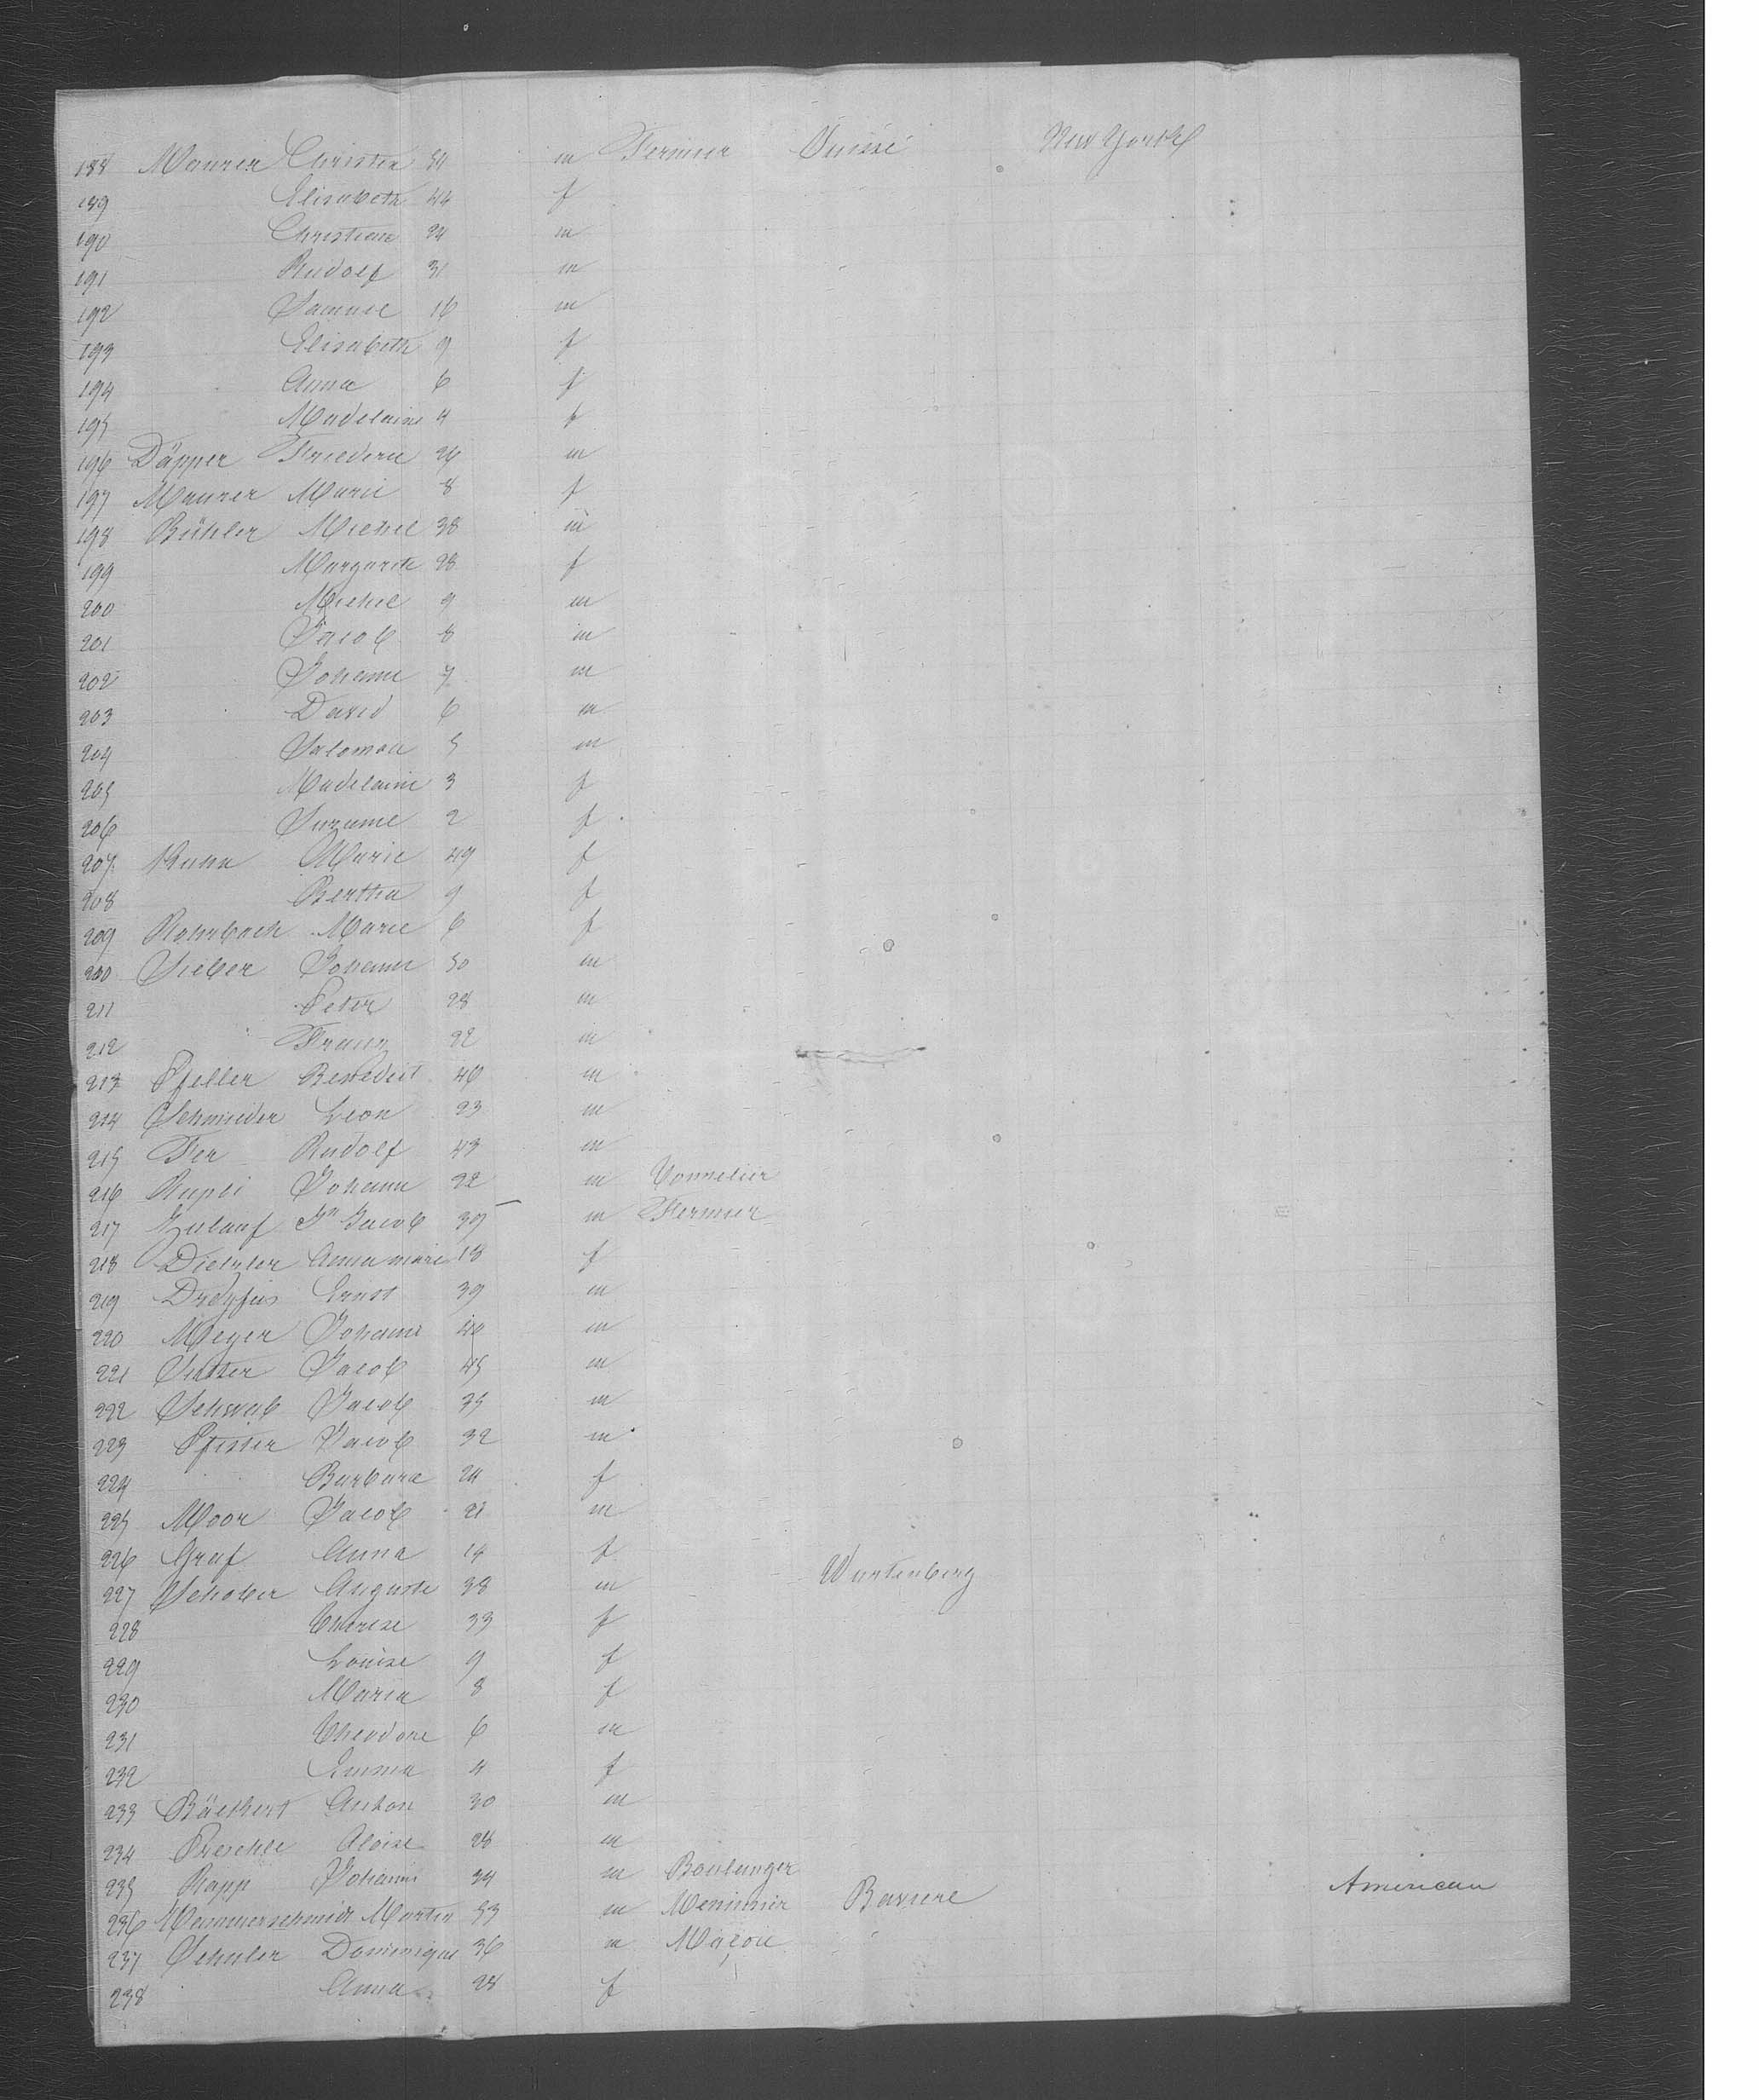 188 Maurer Christen 51 m Fermier Suisse New York
189 Elisabeth 44 f
190 Christian 24 m
191 Rudolf 31 m
192 Samuel 16 m
193 Elisabeth 9 f
194 Anna 6 f
195 Madelaine 4 f
196 Däpper m
197 Maurer Marie 8 f
198 Bühler Michel 38 m
199 Margarete 28 f
200 Michel 9 m
201 Jacob 8 m
202 Johann 7 m
203 David 6 m
204 Salomon 5 m
205 Madelaine 3 f
206 Suzanne 2 f
207 Marie 49 f
208 Bertha 9 f
209 Rohrbach Marie 6 f
210 Sieber Johann 50 m
211 Peter 28 m
212 Franz 22 m
213 Pfeller Benedict 46 m
214 Schmieder Leon 23 m
215 Fer Rudolf 43 m
216 Rupli Johann 22 m Tonnelier
217 Zulauf Jn Jacob 39 m Fermier
218 Dietzler Anna marie 18 f
219 Dreyfus Ernst 39 m
220 Meyer Johann m
221 Sutter Jacob 45 m
222 Schwab Jacob 35 m
223 Pfister Jacob 32 m
224 Barbara 24 f
225 Moor Jacob 21 m
226 Graf Anna 14 f
227 Schober Auguste 38 m Wurtenberg
228 Therese 33 f
229 Louise 9 f
230 Maria 8 f
231 Theodore 6 m
232 Emma 4 f
233 Anton 30 m
234 Aloise 28 m
235 Rapp Johann 34 m Boulanger
236 Hammerschmidt Martin 53 m Menuisier Baviere American
237 Schuler Dominique 36 m Maçon
238 Anna 28 f